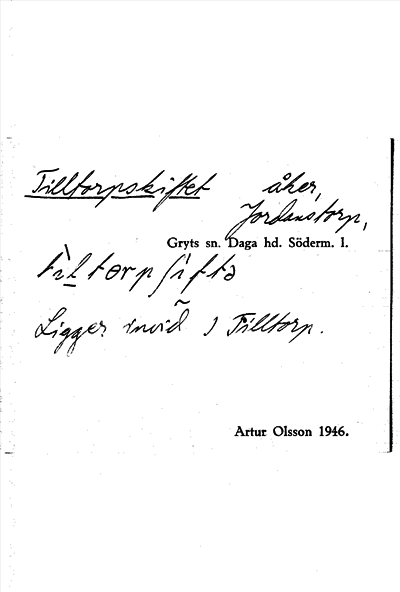 Tilltorpskiftet åker,
Jordanstorp,
Gryts sn. Daga hd. Söderm. l.
Ligger invid Tilltorp.
Artur Olsson 1946.